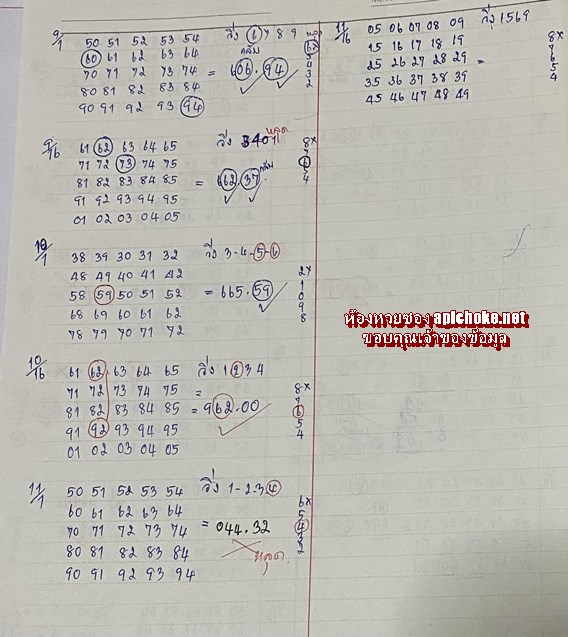 9/1
50 51 52 53 54 วิ่ง 6 7 8 9
60 61 62 63 64 กลับ 6x
70 71 72 73 74 = 606.94
80 81 82 83 84 3
90 91 92 93 94 2
9/16
61 62 63 64 65 วิ่ง 3401 หลุด 8x
71 72 73 74 75 กลับ 7
81 82 83 84 85 = 662.37 6
91 92 93 94 95 5
01 02 03 04 05 4
10/1
38 39 30 31 32 วิ่ง 3-4-5-6
48 49 40 41 42 2x
58 59 50 51 52 = 665.59 1
68 69 60 61 62 0
78 79 70 71 72 9
8
10/16
61 62 63 64 65 วิ่ง 1 2 3 4
71 72 73 74 75 = 8x
81 82 83 84 85 = 962.00 7
91 92 93 94 95 6
01 02 03 04 05 5
4
11/1
50 51 52 53 54 วิ่ง 1-2-3 4
60 61 62 63 64 6x
70 71 72 73 74 = 044.32 5
80 81 82 83 84 หลุด 4
90 91 92 93 94 3
2
11/16
05 06 07 08 09 วิ่ง 1569
15 16 17 18 19 8x
25 26 27 28 29 = 7
35 36 37 38 39 6
45 46 47 48 49 5
4
ห้องหวยซอง apichoke.net
ขอบคุณเจ้าของข้อมูล